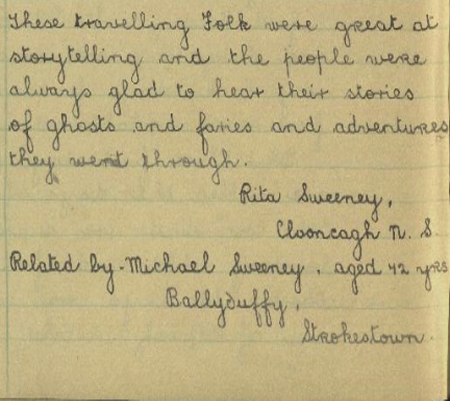 These travelling Folk were great at
storytelling and the people were
always glad to hear their stories
of ghosts and faries and adventures
they went through.
Rita Sweeney,
Clooncagh N. S.
Related by - Michael Sweeney, aged 42 yrs
Ballyduffy,
Strokestown.